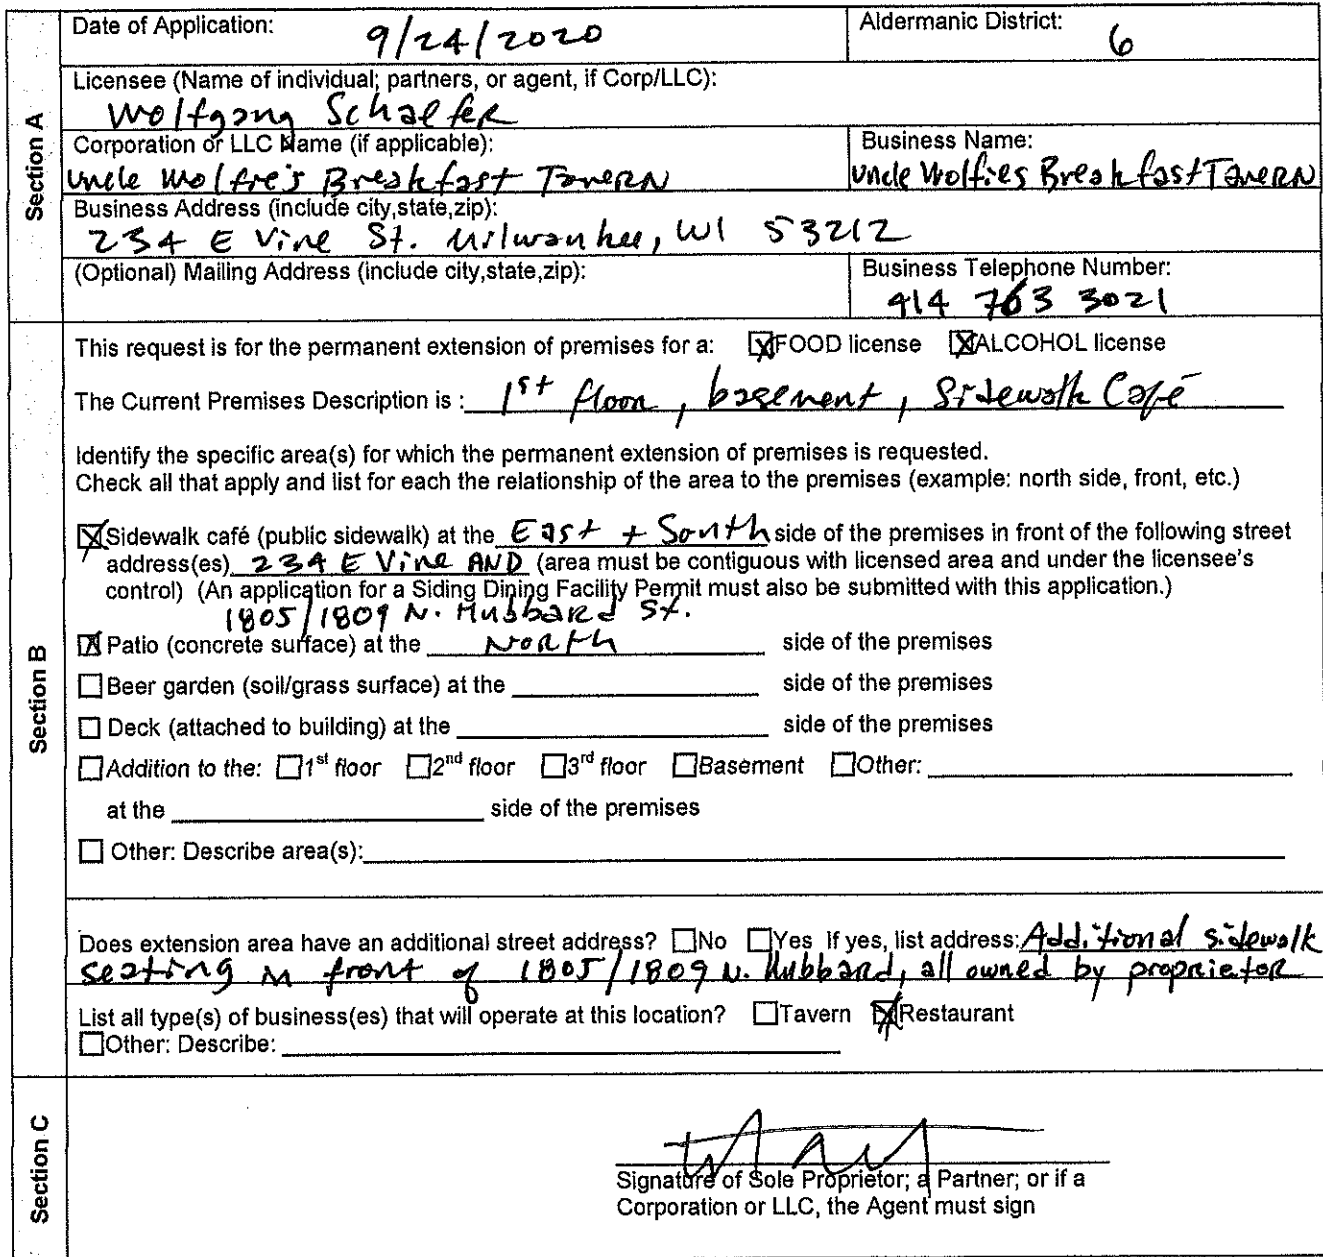 Section A
Date of Application: 9/24/2020 Aldermanic District: 6
Licensee (Name of individual; partners, or agent, if Corp/LLC):
Wolfgang Schaefer
Corporation or LLC Name (if applicable): Business Name:
Uncle Wolfie's Breakfast Tavern Uncle Wolfies Breakfast Tavern
Business Address (include city,state,zip):
234 E Vine St. Milwaukee, WI 53212
(Optional) Mailing Address (include city,state,zip): Business Telephone Number:
414 763 3021
Section B
This request is for the permanent extension of premises for a: ☒FOOD license ☒ALCOHOL license
The Current Premises Description is : 1st floor, basement, Sidewalk Café
Identify the specific area(s) for which the permanent extension of premises is requested.
Check all that apply and list for each the relationship of the area to the premises (example: north side, front, etc.)
☒Sidewalk café (public sidewalk) at the East + South side of the premises in front of the following street
address(es) 234 E Vine AND (area must be contiguous with licensed area and under the licensee's
control) (An application for a Siding Dining Facility Permit must also be submitted with this application.)
1805/1809 N. Hubbard St.
☒ Patio (concrete surface) at the North side of the premises
☐ Beer garden (soil/grass surface) at the ____ side of the premises
☐ Deck (attached to building) at the ____ side of the premises
☐Addition to the: ☐1st floor ☐2nd floor ☐3rd floor ☐Basement ☐Other: ____
at the ____ side of the premises
☐ Other: Describe area(s): ____
Does extension area have an additional street address? ☐No ☐Yes If yes, list address: Additional sidewalk
seating in front of 1805/1809 N. Hubbard, all owned by proprietor
List all type(s) of business(es) that will operate at this location? ☐Tavern ☒Restaurant
☐Other: Describe: ____
Section C
Signature of Sole Proprietor; a Partner; or if a
Corporation or LLC, the Agent must sign